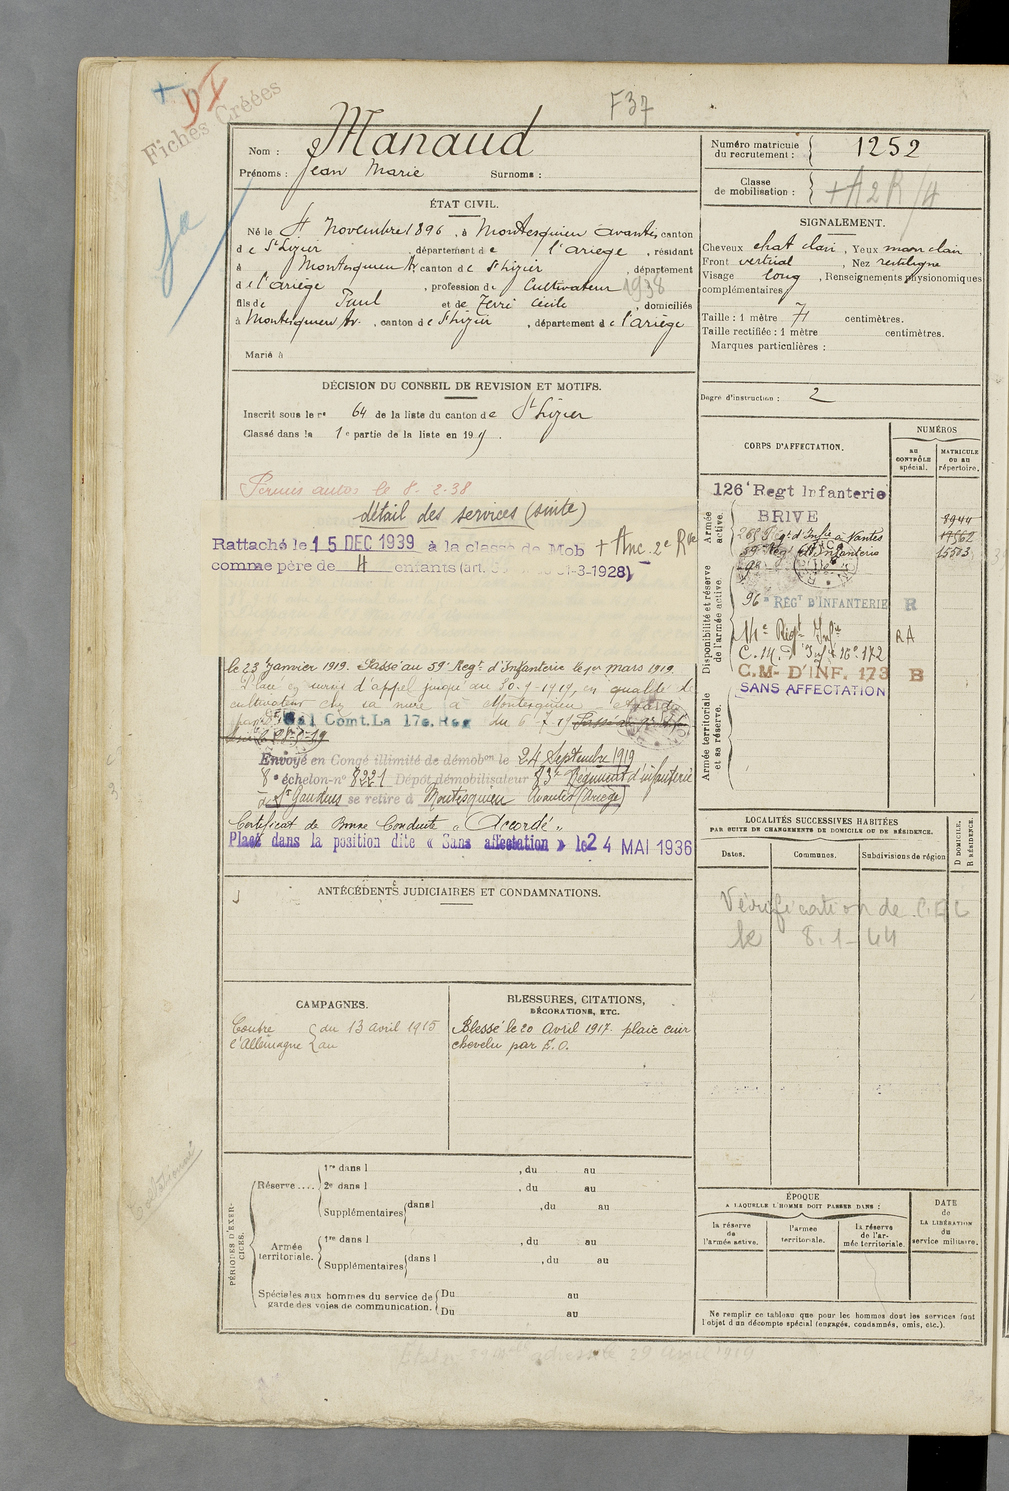 F37
Fiches Créées
Nom : Manaud
Prénoms : Jean Marie Surnoms :
Numéro matricule du recrutement : 1252
Classe de mobilisation : + A 2 R /4
ÉTAT CIVIL.
Né le 4 Novembre 1896, à Montesquieu Avantès canton
de St Lizier, département de l'ariège, résidant
à Montesquieu Av. canton de St Lizier, département
de l'ariège, profession de Cultivateur 1938
fils de Paul et de Ferri Cécile, domiciliés
à Montesquieu Av., canton de St Lizier, département de l'ariège
Marié à
SIGNALEMENT.
Cheveux chat clair, Yeux marr clair,
Front vertical, Nez rectiligne
Visage long, Renseignements physionomiques
complémentaires
Taille : 1 mètre 71 centimètres.
Taille rectifiée : 1 mètre centimètres.
Marques particulières :
Degré d'instruction : 2
DÉCISION DU CONSEIL DE REVISION ET MOTIFS.
Inscrit sous le no 64 de la liste du canton de St Lizier
Classé dans la 1e partie de la liste en 19
Permis autos le 8-2-38
détail des services (suite)
Rattaché le 15 DEC 1939 à la classe de Mob + Anc. 2e Rve
comme père de 4 enfants (art. 31-3-1928)
le 23 Janvier 1919. Passé au 59e Regt. d'Infanterie le 1er mars 1919.
Placé en sursis d'appel jusqu'au 30-9-1919, en qualité de
cultivateur chez sa mère à Montesquieu Avantès
Gal Comt. La 17e. Reg du 6-7-19
Envoyé en Congé illimité de démobon le 24 Septembre 1919
8e échelon-no 8221 Dépôt démobilisateur 83e Régiment d'infanterie
de St Gaudens se retire à Montesquieu Avantès (Ariège)
Certificat de Bonne Conduite « Accordé »
Placé dans la position dite « Sans affectation » le 24 MAI 1936
CORPS D'AFFECTATION.
NUMÉROS
AU CONTRÔLE spécial.
MATRICULE OU AU répertoire.
Armée active.
126e Regt Infanterie
BRIVE 8944
265 Régt d'Infie à Nantes 17562
59e Régt d'Infanterie 15503
Disponibilité et réserve de l'armée active.
96e RÉGT D'INFANTERIE R
Régt Infie RA
C.M. d'Inf. 172
C.M- D'INF. 173 B
SANS AFFECTATION
Armée territoriale et sa réserve.
LOCALITÉS SUCCESSIVES HABITÉES
PAR SUITE DE CHANGEMENTS DE DOMICILE OU DE RÉSIDENCE.
Dates. Communes. Subdivisions de région
D DOMICILE. R RÉSIDENCE.
Vérification de
le 8-1-44
ANTÉCÉDENTS JUDICIAIRES ET CONDAMNATIONS.
CAMPAGNES.
Contre l'Allemagne { du 13 avril 1915
au
BLESSURES, CITATIONS,
DÉCORATIONS, ETC.
Blessé le 20 Avril 1917. plaie cuir
chevelu par E.O.
Collationné
PÉRIODES D'EXERCICES.
Réserve.... 1re dans l , du au
2e dans l , du au
Supplémentaires dans l , du au
Armée territoriale. 1re dans l , du au
Supplémentaires dans l , du au
Spéciales aux hommes du service de garde des voies de communication. Du au
Du au
ÉPOQUE
A LAQUELLE L'HOMME DOIT PASSER DANS :
la réserve de l'armée active.
l'armée territoriale.
la réserve de l'armée territoriale.
DATE de LA LIBÉRATION du service militaire.
Ne remplir ce tableau que pour les hommes dont les services font
l'objet d'un décompte spécial (engagés, condamnés, omis, etc.).
29 avril 1919